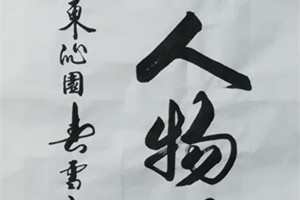 人物
東沁園書雪